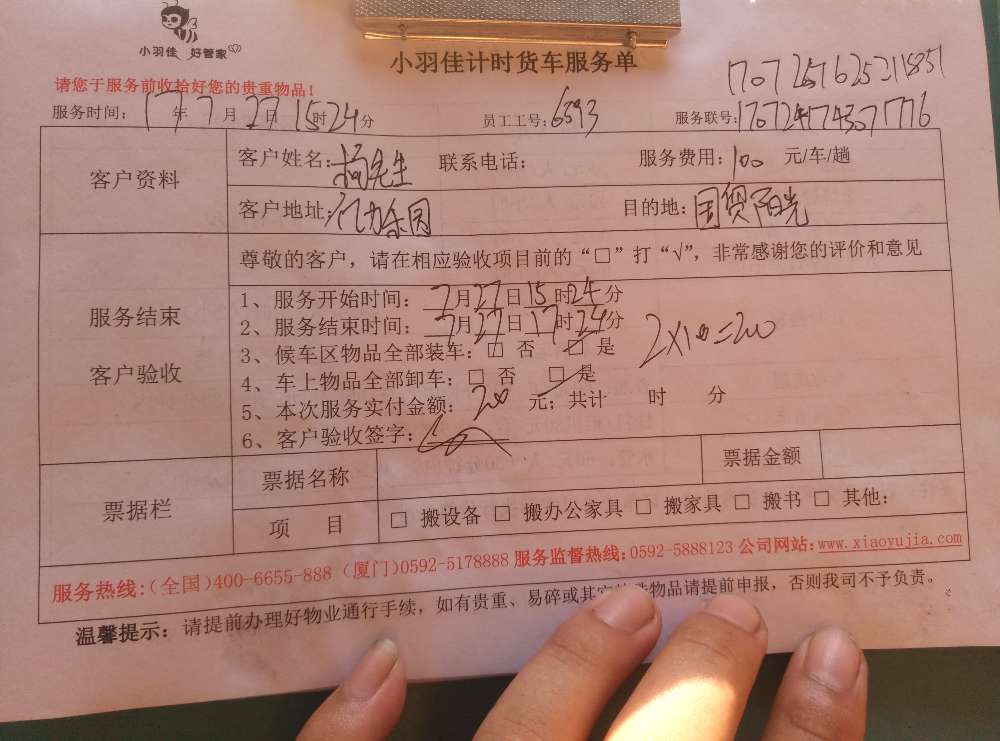 小羽佳 好管家
小羽佳计时货车服务单
请您于服务前收拾好您的贵重物品！
服务时间： 17年 7月 27日 15时24分 员工工号：6593 服务联号：
客户资料
客户姓名：杨先生 联系电话： 服务费用：100 元/车/趟
客户地址： 目的地：国贸阳光
服务结束
客户验收
尊敬的客户，请在相应验收项目前的“□”打“√”，非常感谢您的评价和意见
1、服务开始时间：7月27日15时24分
2、服务结束时间：7月27日17时24分
3、候车区物品全部装车：□ 否 ☑ 是
2×100=200
4、车上物品全部卸车：□ 否 ☑ 是
5、本次服务实付金额：200 元；共计 时 分
6、客户验收签字：
票据栏
票据名称 票据金额
项 目 □ 搬设备 □ 搬办公家具 □ 搬家具 □ 搬书 □ 其他：
服务热线：（全国）400-6655-888（厦门）0592-5178888 服务监督热线：0592-5888123 公司网站：www.xiaoyujia.com
温馨提示：请提前办理好物业通行手续，如有贵重、易碎或其它特殊物品请提前申报，否则我司不予负责。